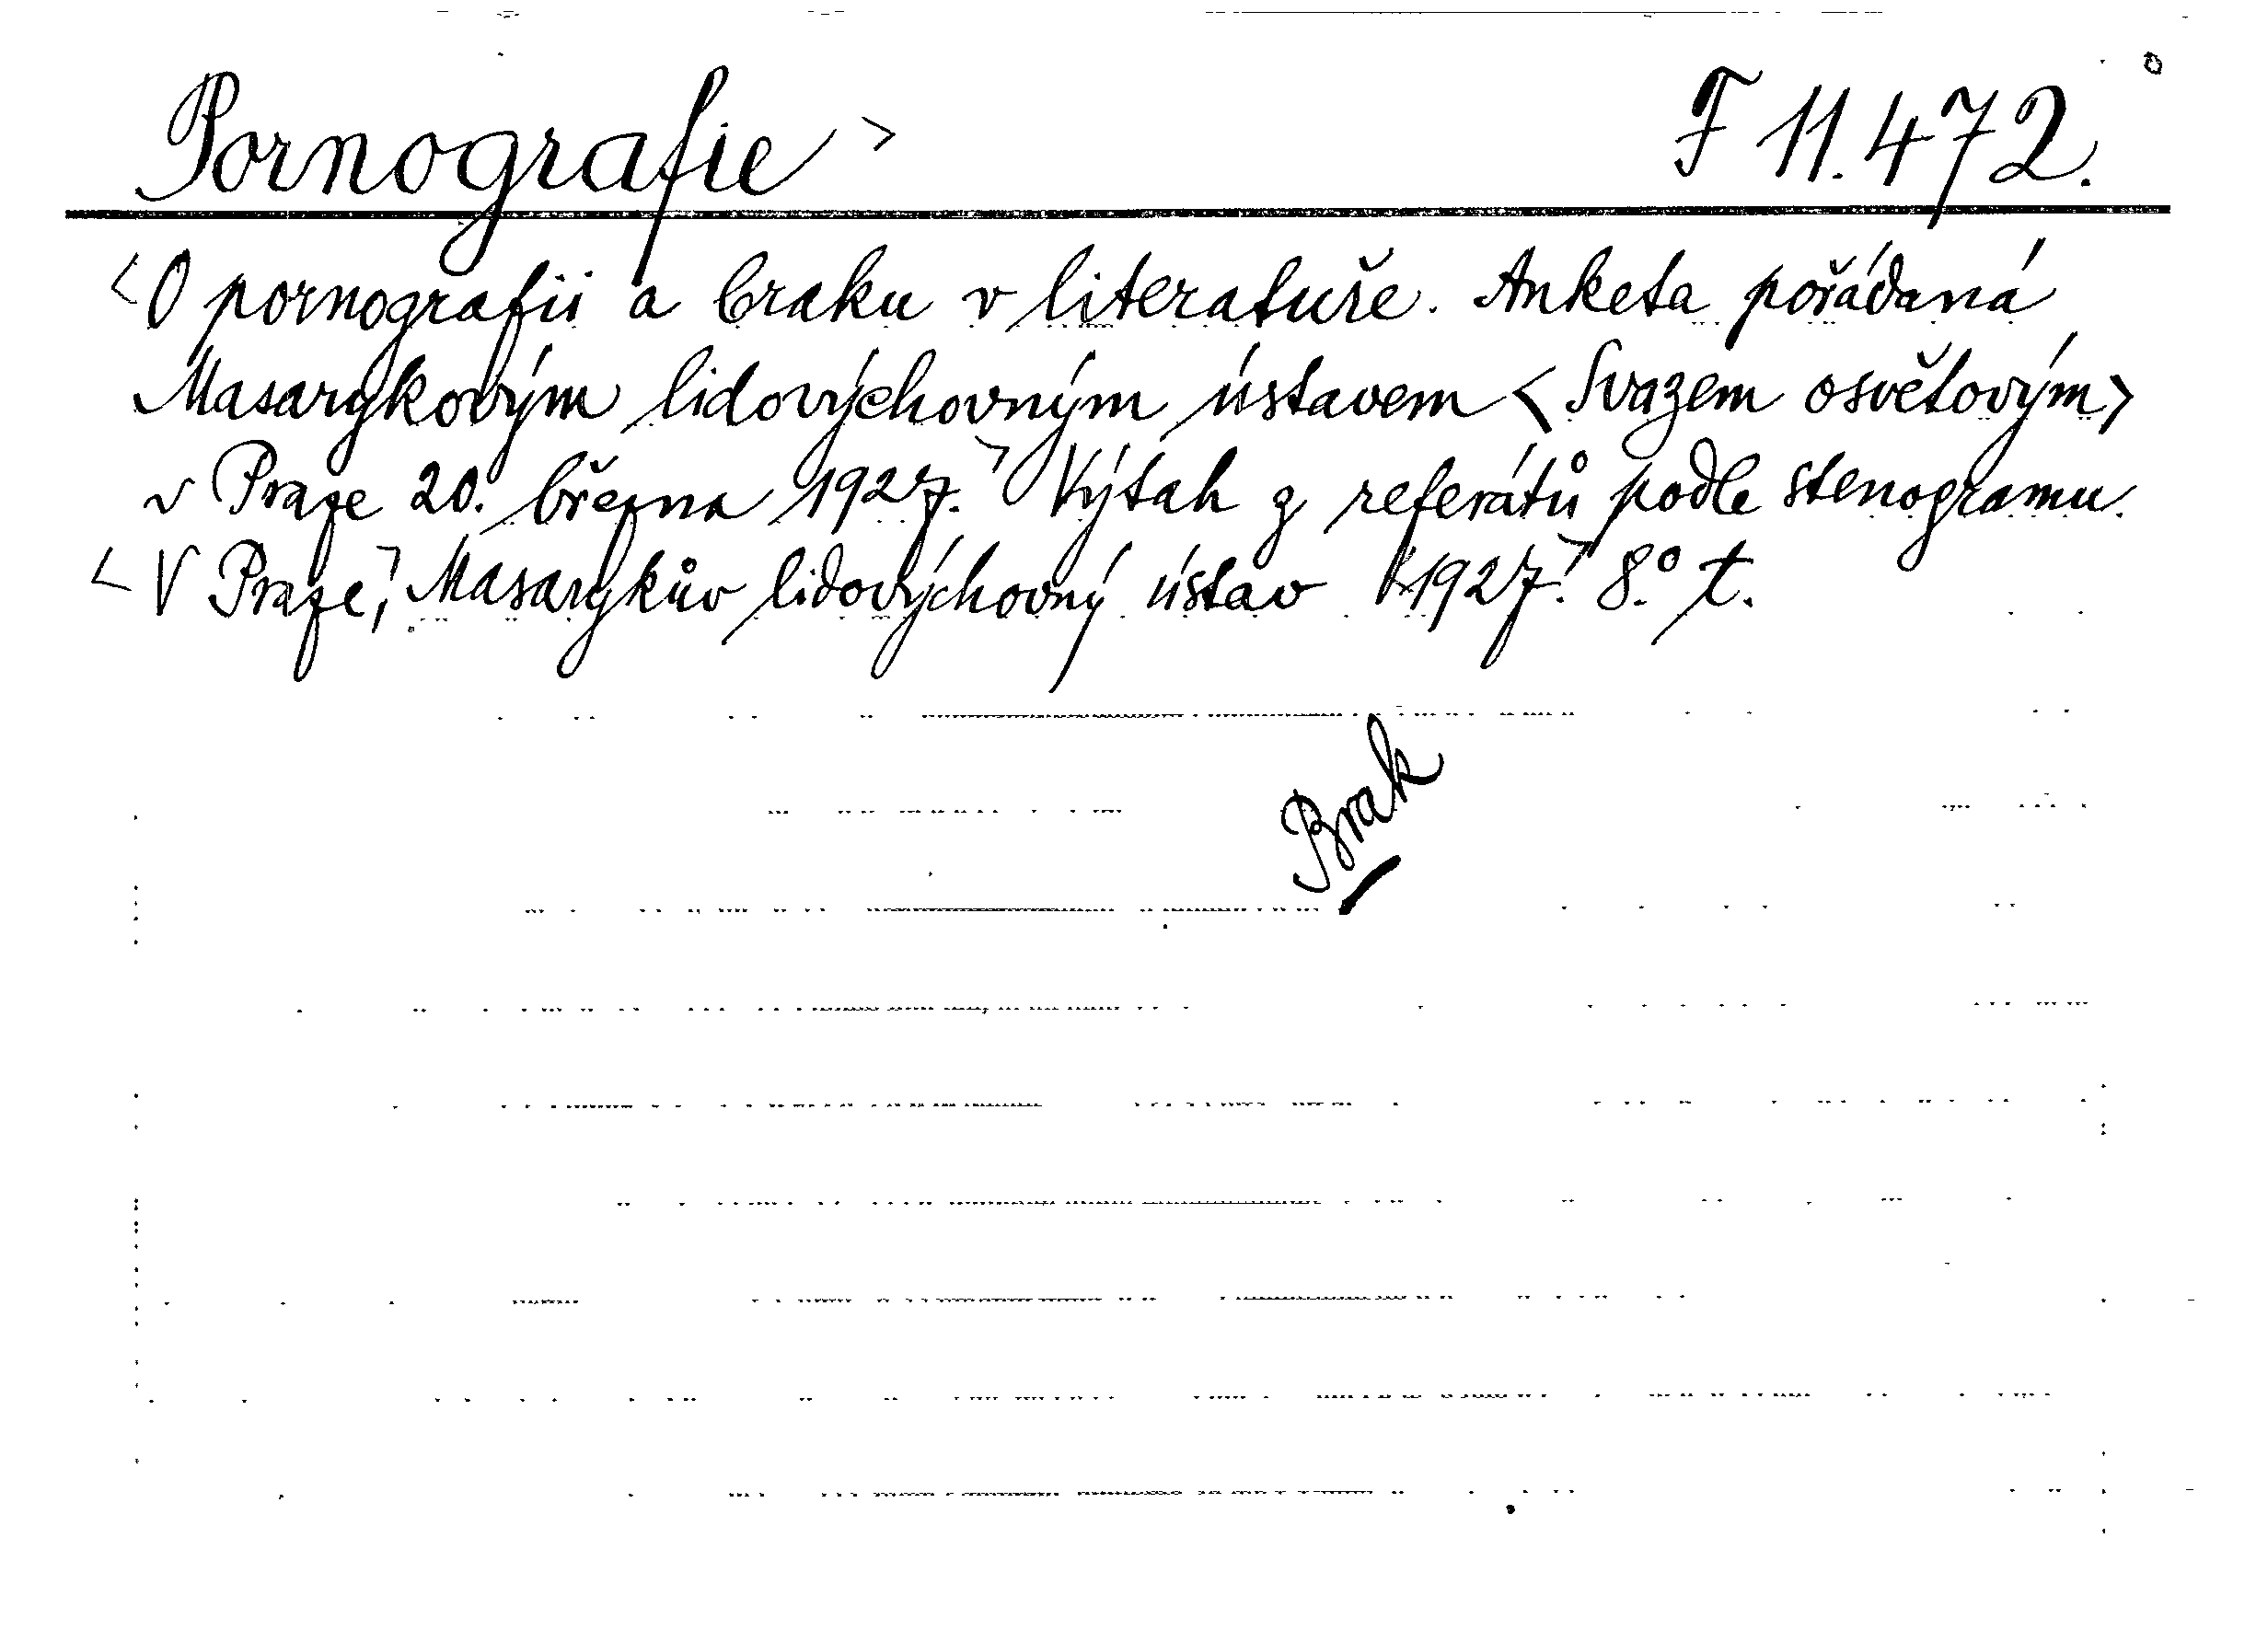 Pornografie > F 11.472.
<O pornografii a braku v literatuře. Anketa pořádaná
Masarykovým lidovýchovným ústavem <Svazem osvětovým>
v Praze 20. března 1927.> Výtah z referátů podle stenogramu.
<V Praze,> Masarykův lidovýchovný ústav <1927.> 8.° t.
Brak